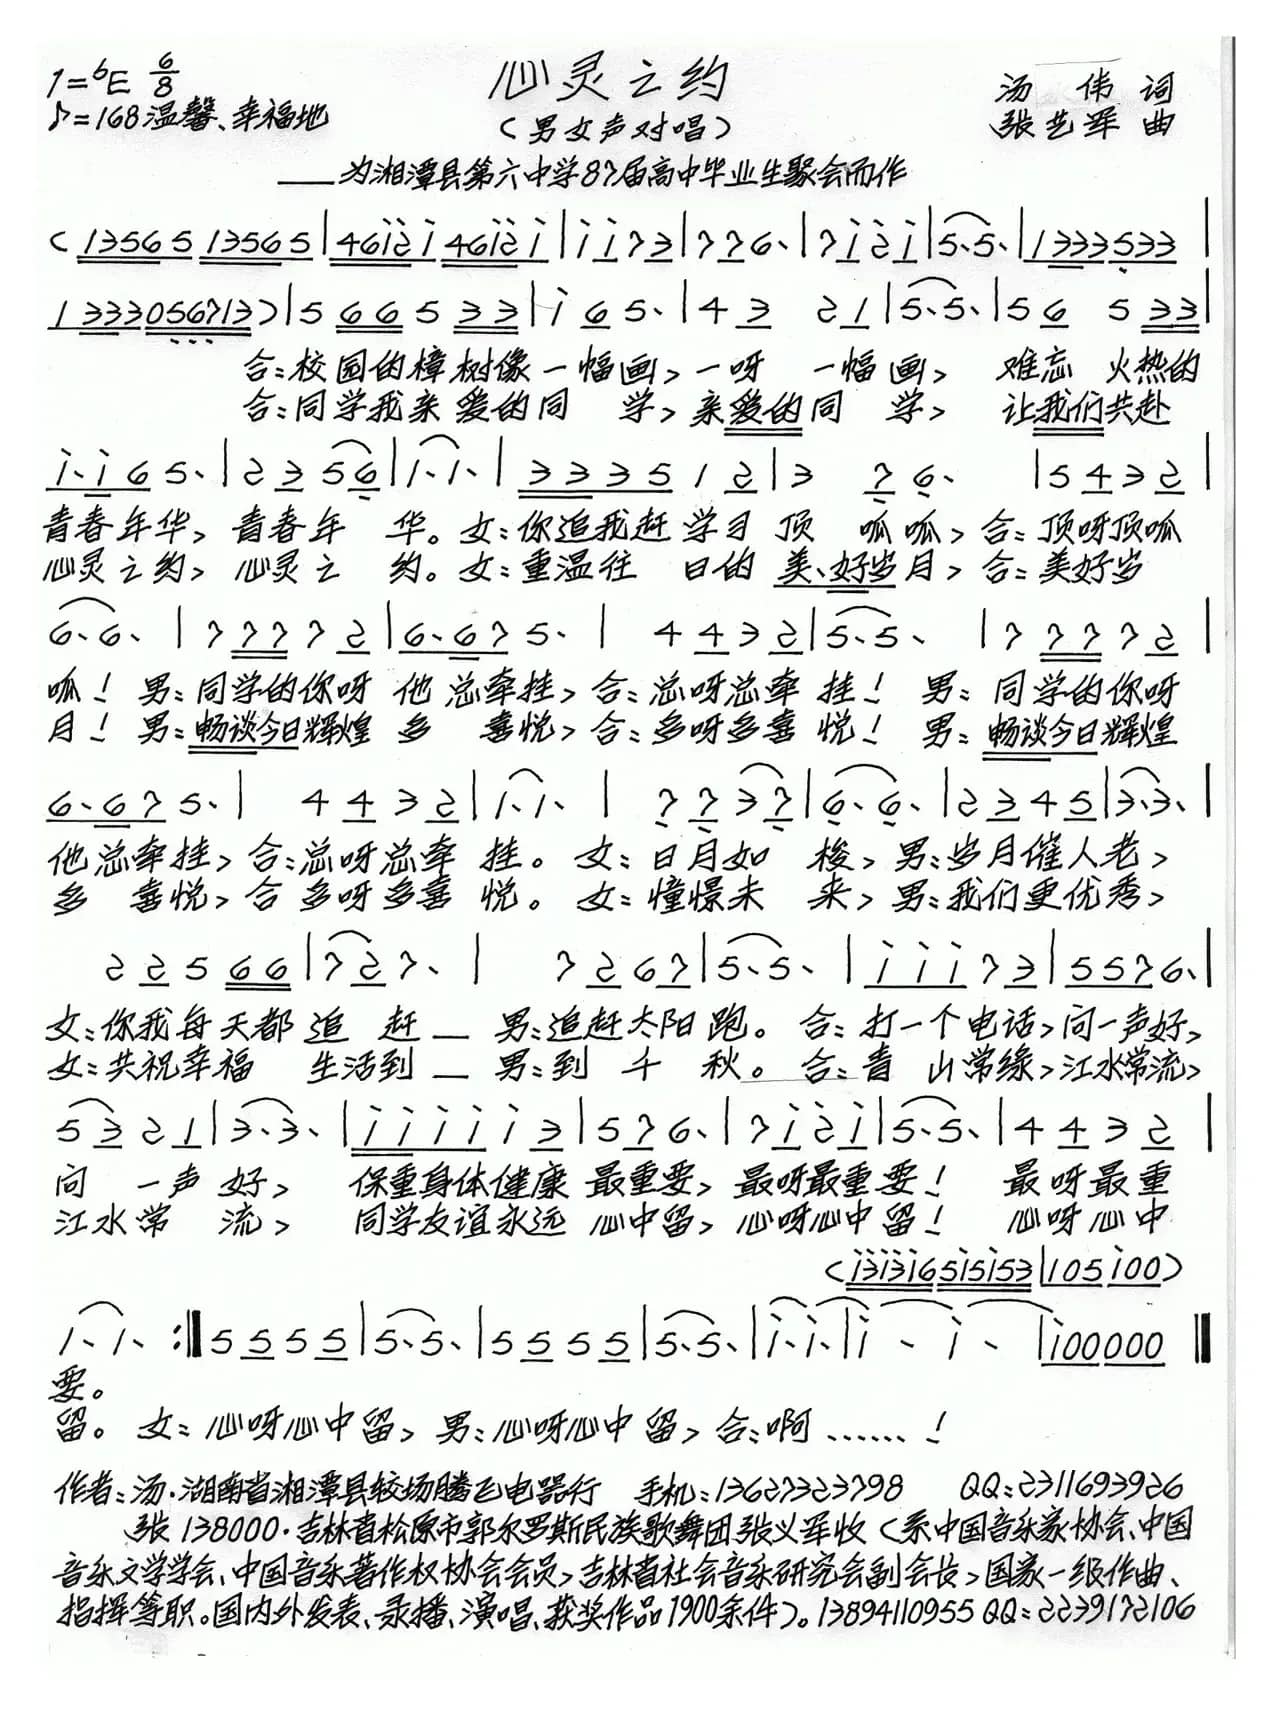 1=♭E 6/8
心灵之约
汤 伟 词
♪=168 温馨、幸福地
(男女声对唱)
张艺军 曲
——为湘潭县第六中学87届高中毕业生聚会而作
(13565 13565|461̇2̇1̇ 461̇2̇1̇|1̇1̇73|776·|71̇2̇1̇|5·5·|1333533|
1333056713)|566533|1̇65·|43 21|5·5·|56 533|
合:校园的樟树像一幅画,一呀 一幅画, 难忘 火热的
合:同学我亲爱的同 学,亲爱的同 学, 让我们共赴
1̇·1̇65·|2356|1·1·|333512|3 76·|5432|
青春年华,青春年 华。女:你追我赶学习顶 呱呱,合:顶呀顶呱
心灵之约,心灵之 约。女:重温往 日的美、好岁月,合:美好岁
6·6·|777772|6·675·|4432|5·5·|777772|
呱!男:同学的你呀他总牵挂,合:总呀总牵挂!男:同学的你呀
月!男:畅谈今日辉煌多 喜悦,合:多呀多喜悦!男:畅谈今日辉煌
6·675·|4432|1·1·|7737|6·6·|2345|3·3·|
他总牵挂,合:总呀总牵 挂。女:日月如 梭,男:岁月催人老,
多 喜悦,合 多呀多喜 悦。女:憧憬未 来,男:我们更优秀,
22566|727·|7267|5·5·|1̇1̇1̇73|5576·|
女:你我每天都追 赶— 男:追赶太阳跑。合:打一个电话,问一声好,
女:共祝幸福 生活到— 男:到 千 秋。合:青 山常缘,江水常流,
5321|3·3·|1̇1̇1̇1̇1̇3|576·|71̇2̇1̇|5·5·|4432|
问 一声好, 保重身体健康最重要,最呀最重要! 最呀最重
江水常 流, 同学友谊永远心中留,心呀心中留! 心呀心中
(1̇31̇31̇651̇51̇53|1051̇00)
1·1·:‖5555|5·5·|5555|5·5·|1̇·1̇·|1̇·1̇·|1̇00000‖
要。
留。女:心呀心中留,男:心呀心中留,合:啊……!
作者:汤·湖南省湘潭县较场腾飞电器行 手机:13627323798 QQ:2311693926
张 138000·吉林省松原市郭尔罗斯民族歌舞团张义军收(系中国音乐家协会、中国
音乐文学学会、中国音乐著作权协会会员,吉林省社会音乐研究会副会长,国家一级作曲、
指挥等职。国内外发表、录播、演唱、获奖作品1900余件)。13894110955 QQ:2239172106